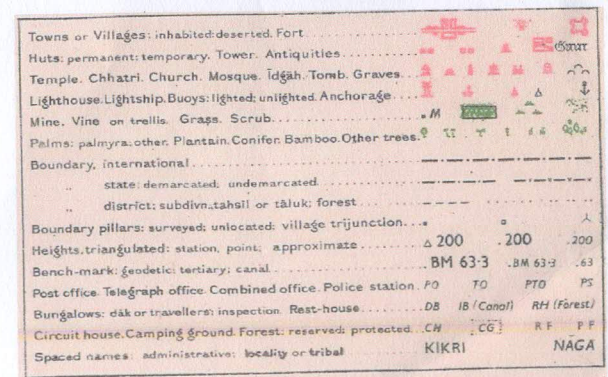 Towns or Villages: inhabited: deserted. Fort
Huts: permanent; temporary. Tower. Antiquities
Temple. Chhatri. Church. Mosque. Īdgāh. Tomb. Graves
Lighthouse. Lightship. Buoys: lighted; unlighted. Anchorage
Mine. Vine on trellis. Grass. Scrub .M
Palms: palmyra; other. Plantain. Conifer. Bamboo. Other trees
Boundary, international
„ state: demarcated, undemarcated
„ district; subdivn. tahsil or tāluk; forest
Boundary pillars: surveyed; unlocated; village trijunction
Heights, triangulated: station, point; approximate △200 .200 .200
Bench-mark: geodetic; tertiary; canal .BM 63·3 .BM 63·3 .63
Post office. Telegraph office. Combined office. Police station. PO TO PTO PS
Bungalows: dāk or travellers; inspection. Rest-house DB IB (Canal) RH (Forest)
Circuit house. Camping ground. Forest: reserved; protected. CH CG RF PF
Spaced names: administrative; locality or tribal KIKRI NĀGA